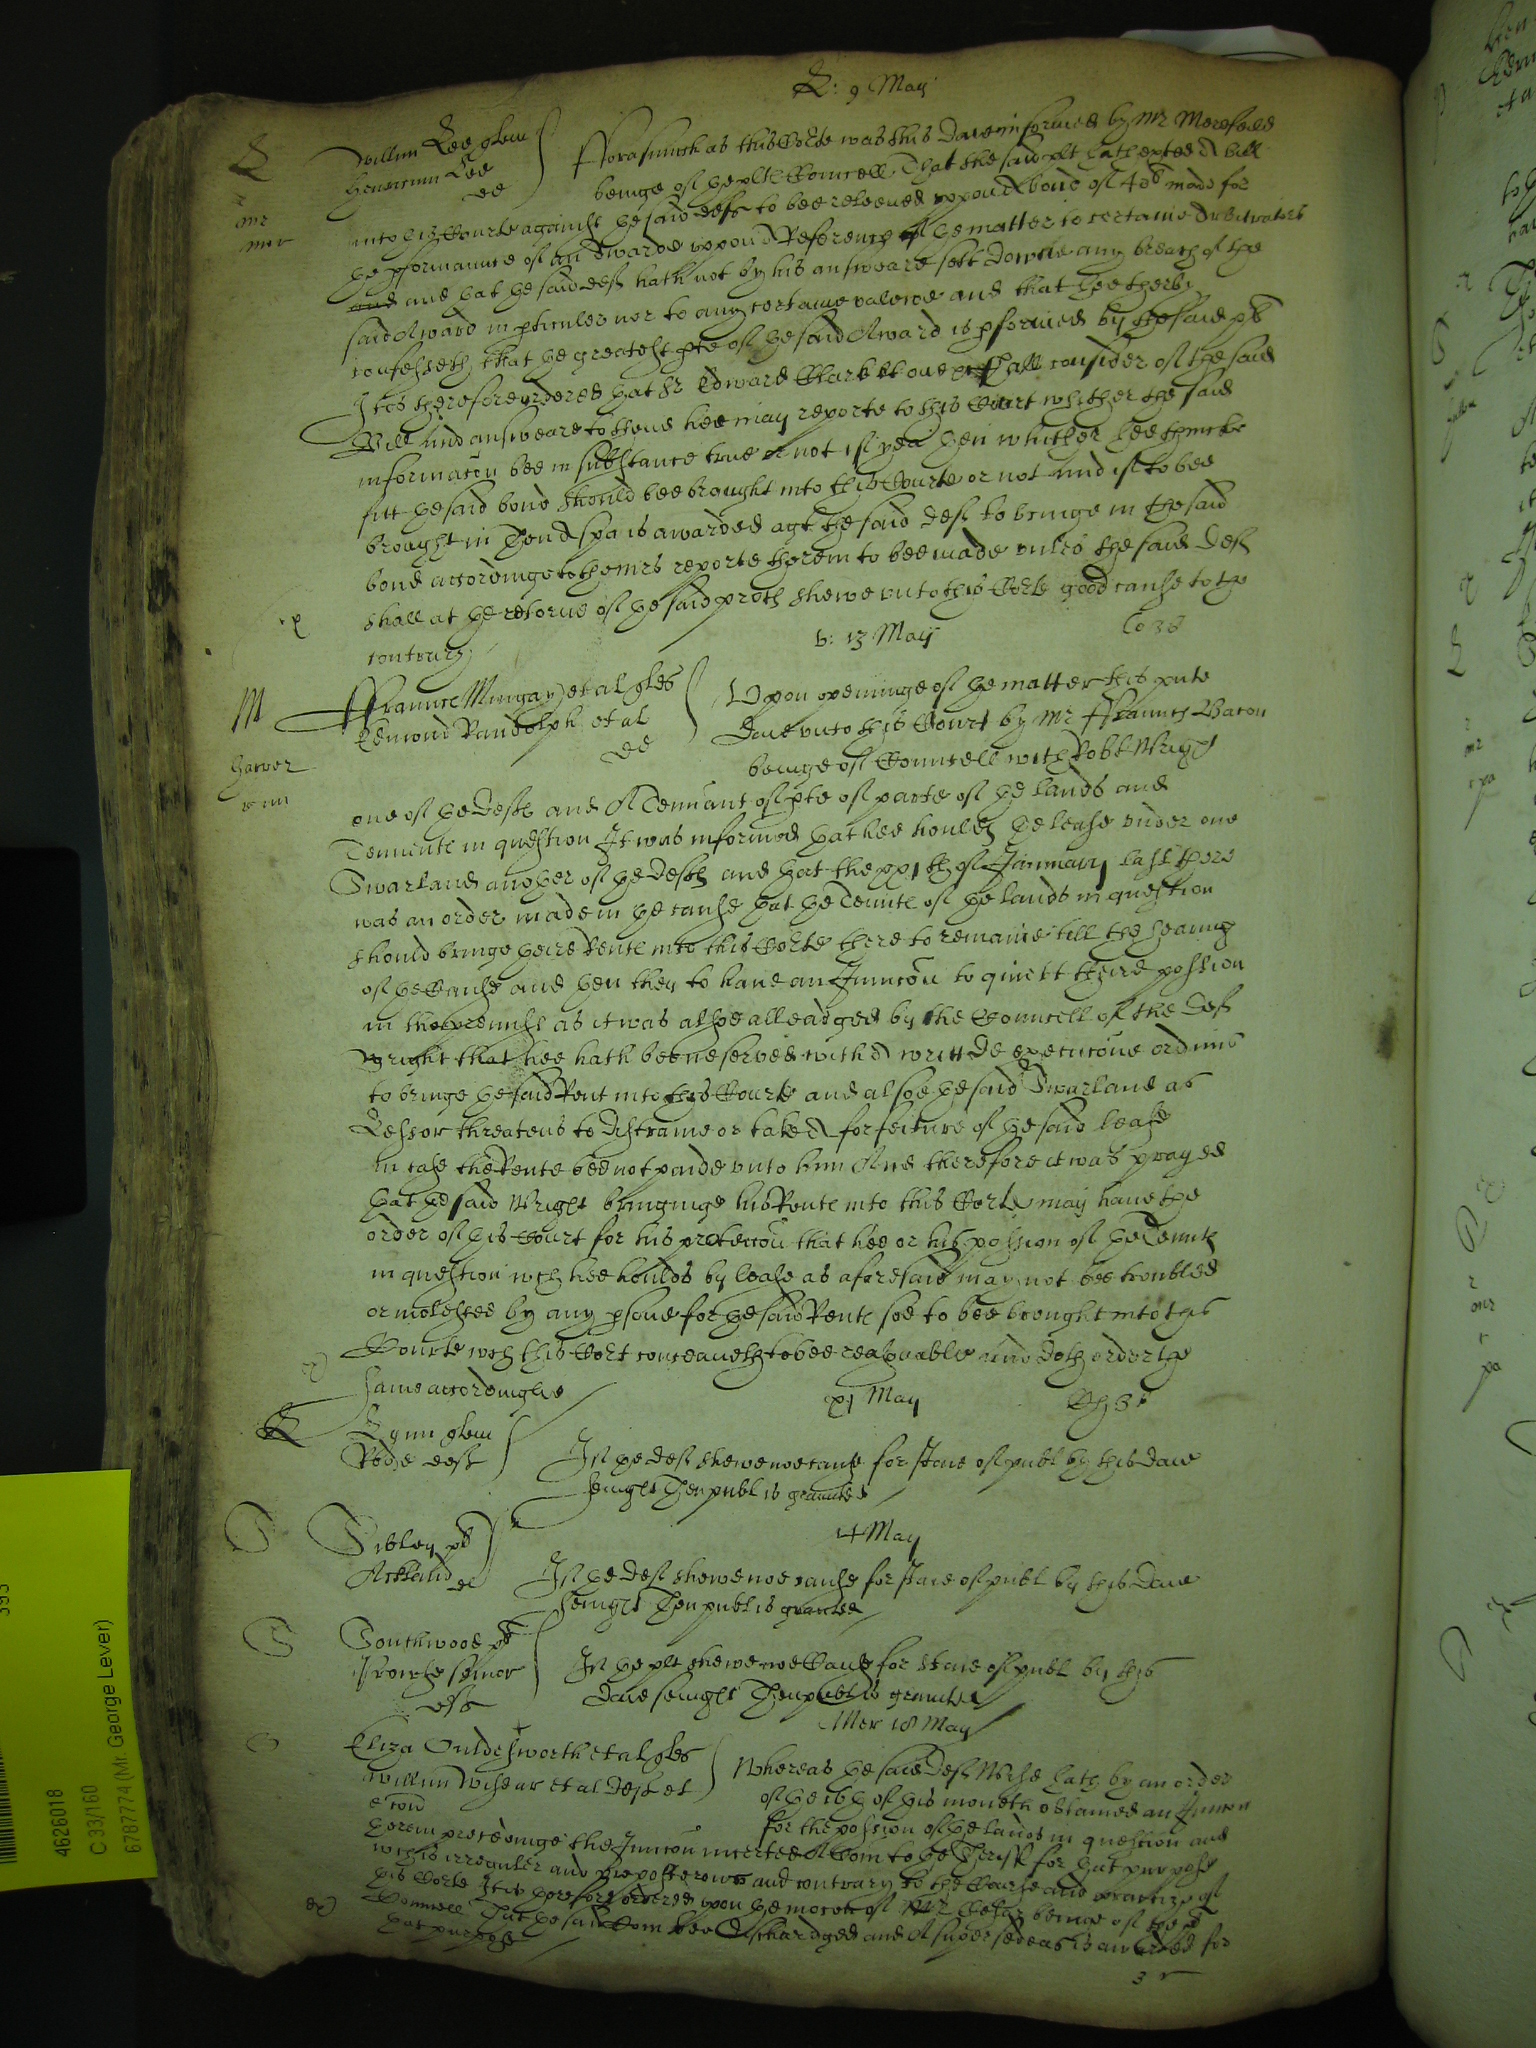 L: 9 May
L
mr
Willm Lee gten
Henericum Lee
de
Fforasmuch as this Corte was this daie informed by Mr Morefeild
beinge of þe plts Councell That the said plt hath exhited A bill
into þis Courte against þe said deft to bee releeved uppon A bond of 40l made for
þe pformance of an Awarde uppon A Reference of þe matter to certaine Arbitrators
and þat þe said deft hath not by his answeare sett downe any breach of the
said Award in pticuler nor to any certaine valewe and that hee therby
confesseth that þe greatest pte of þe said Award is pformed by the said plt
It is therefore ordered þat Sr Edward Clark shall consider of the said
Bill and answeare to thend hee may reporte to this Court whither the said
informacon bee in substance true or not if yea then whither hee thincke
fitt þe said bond should bee brought into this Courte or not And if to bee
brought in Then A spa is awarded agt the said deft to bringe in the said
bond accordinge to the mrs reporte therein to bee made unles the said deft
shall at þe retorne of þe said proces shewe unto this Corte good cause to the
contrary
v: 13 May
M
Ffraunce Mingay et al qtes
Edmond Randolph et al
de
Upon openinge of þe matter this pnte
daie unto this Court by Mr Ffraunces Bacon
beinge of Councell with Robt Wright
one of þe defts and A Tennant of pte of þe lands and
Tennts in question It was informed þat hee houldes þe lease under one
Swarland another of þe defts and þat the xxjth of January last there
was an order made in þe cause þat þe Tennts of þe lands in question
should bringe theire Rents into this Corte there to remaine till the hearing
of þe Cause and then they to have an Iniuncon to quiett theire possion
in the premisses as it was alsoe alleadged by the Councell of the deft
Wright that hee hath beene served with A writt de execucone ordinis
to bringe þe said Rent into this Courte and alsoe þe said Swarland as
Lessor threatens to distraine or take A forfeiture of þe said lease
in case the Rente bee not paide unto him And therefore it was prayed
þat þe said Wright bringinge his Rents into this Corte may have the
order of þis Court for his proteccon that hee or his possion of þe Tennts
in question wch hee houlds by lease as aforesaid may not bee troubled
or molested by any psone for þe said Rents soe to bee brought into this
Courte wch this Cort conceaveth to bee reasonable and doth order the
same accordinglie
xj May
L
Lynn qten
deft
If þe deft shewe noe cause for staie of publ by this daie
sevnight Then publ is graunted
S
14 May
Sibley plt
Ackland de
If þe deft shewe noe cause for staie of publ by this daie
sevnight Then publ is graunted
S
Southwood plt
senior
deft
If þe plt shewe noe Cause for staie of publ by this
daie sevnight Then publ is graunted
Mer 18 May
Eliza Ouldesworth et al qtes
Willim et al defts et
e con
Whereas þe said deft hath by an order
of þe 16th of this moneth obtained an Iniuncon
for the possion of þe lands in question and
therein proceedinge the Iniuncon inserted A Com to þe Sheriff for þat purpose
wch is irreguler and preposterous and contrary to the Course and practize of
this Corte It is therefore ordered upon þe mocon of Mr beinge of the plts
Councell That þe said Com bee dischardged and A supersedeas is awarded for
that purpose
4626018
C 33/160
6787774 (Mr. George Lever)